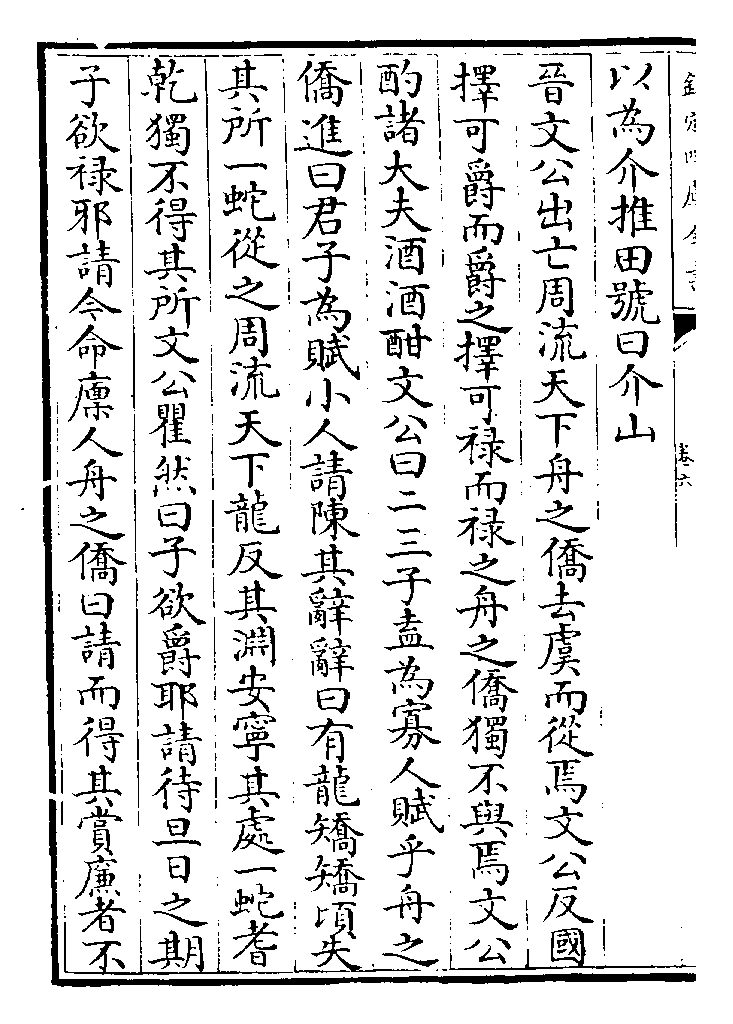 欽定四庫全書
卷六
以為介推田號曰介山
晉文公出亡周流天下舟之僑去虞而從焉文公反國
擇可爵而爵之擇可禄而禄之舟之僑獨不與焉文公
酌諸大夫酒酒酣文公曰二三子盍為寡人賦乎舟之
僑進曰君子為賦小人請陳其辭辭曰有龍矯矯頃失
其所一蛇從之周流天下龍反其淵安寧其處一蛇耆
乾獨不得其所文公瞿然曰子欲爵耶請待旦日之期
子欲禄邪請今命廩人舟之僑曰請而得其賞廉者不